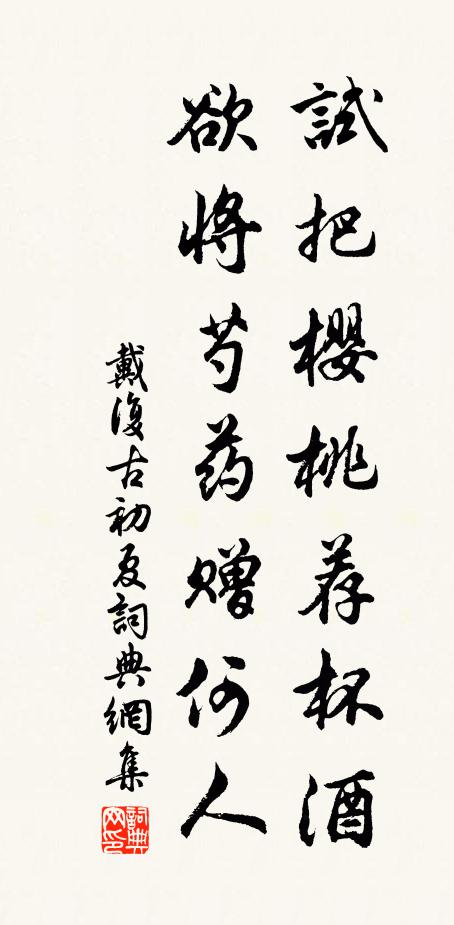 試把櫻桃荐杯酒
欲將芍药贈何人
戴復古初夏詞典網集
詞典网印